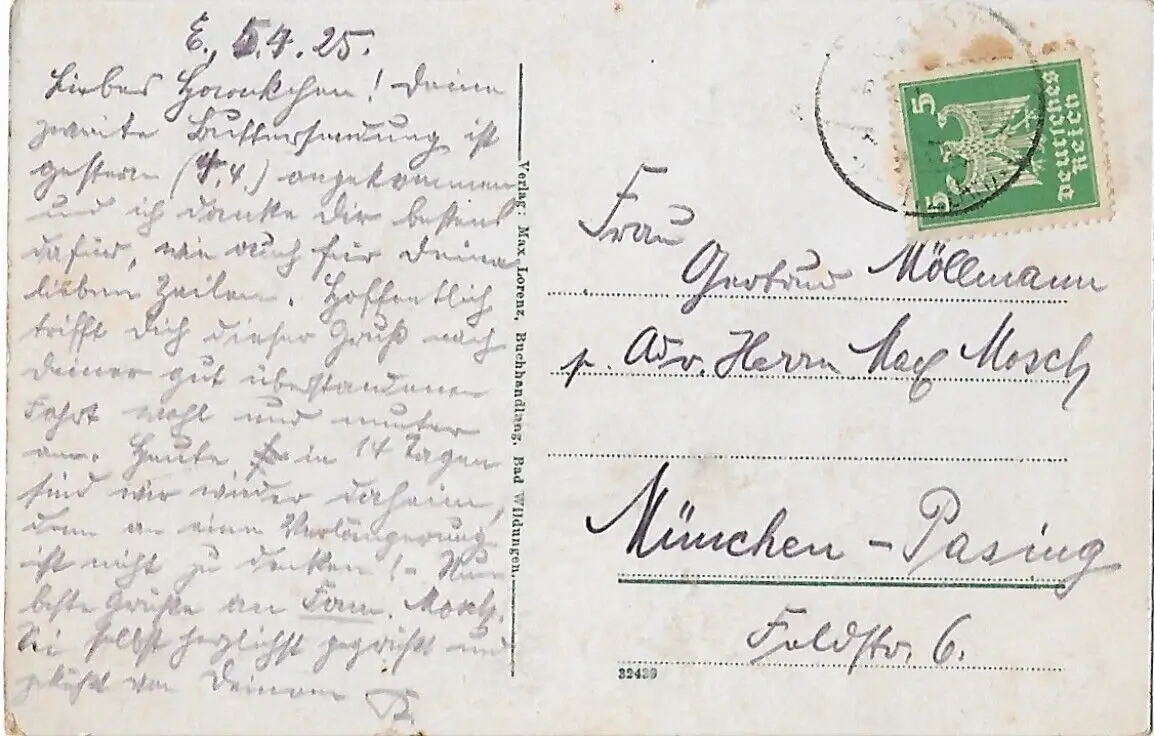 E., 5.4.25.
Liebes! Deine
zweite Buttersendung ist
gestern (4.4.) angekommen
und ich danke Dir bestens
dafür, wie auch für Deine
lieben Zeilen. Hoffentlich
trifft Dich dieser Gruß nach
Deiner gut überstandenen
Fahrt wohl und munter
an. Heute in 14 Tagen
sind wir wieder daheim,
denn an eine Verlängerung
ist nicht zu denken! – Nun
beste Grüße an Fam. Mosch.
Sei selbst herzlichst gegrüßt und
geküßt von Deinem
Verlag: Max Lorenz, Buchhandlung, Bad Wildungen.
5
5
Deutsches
Reich
Frau
Gertrud Möllmann
p. Adr. Herrn Max Mosch
München – Pasing
Feldstr. 6.
32439